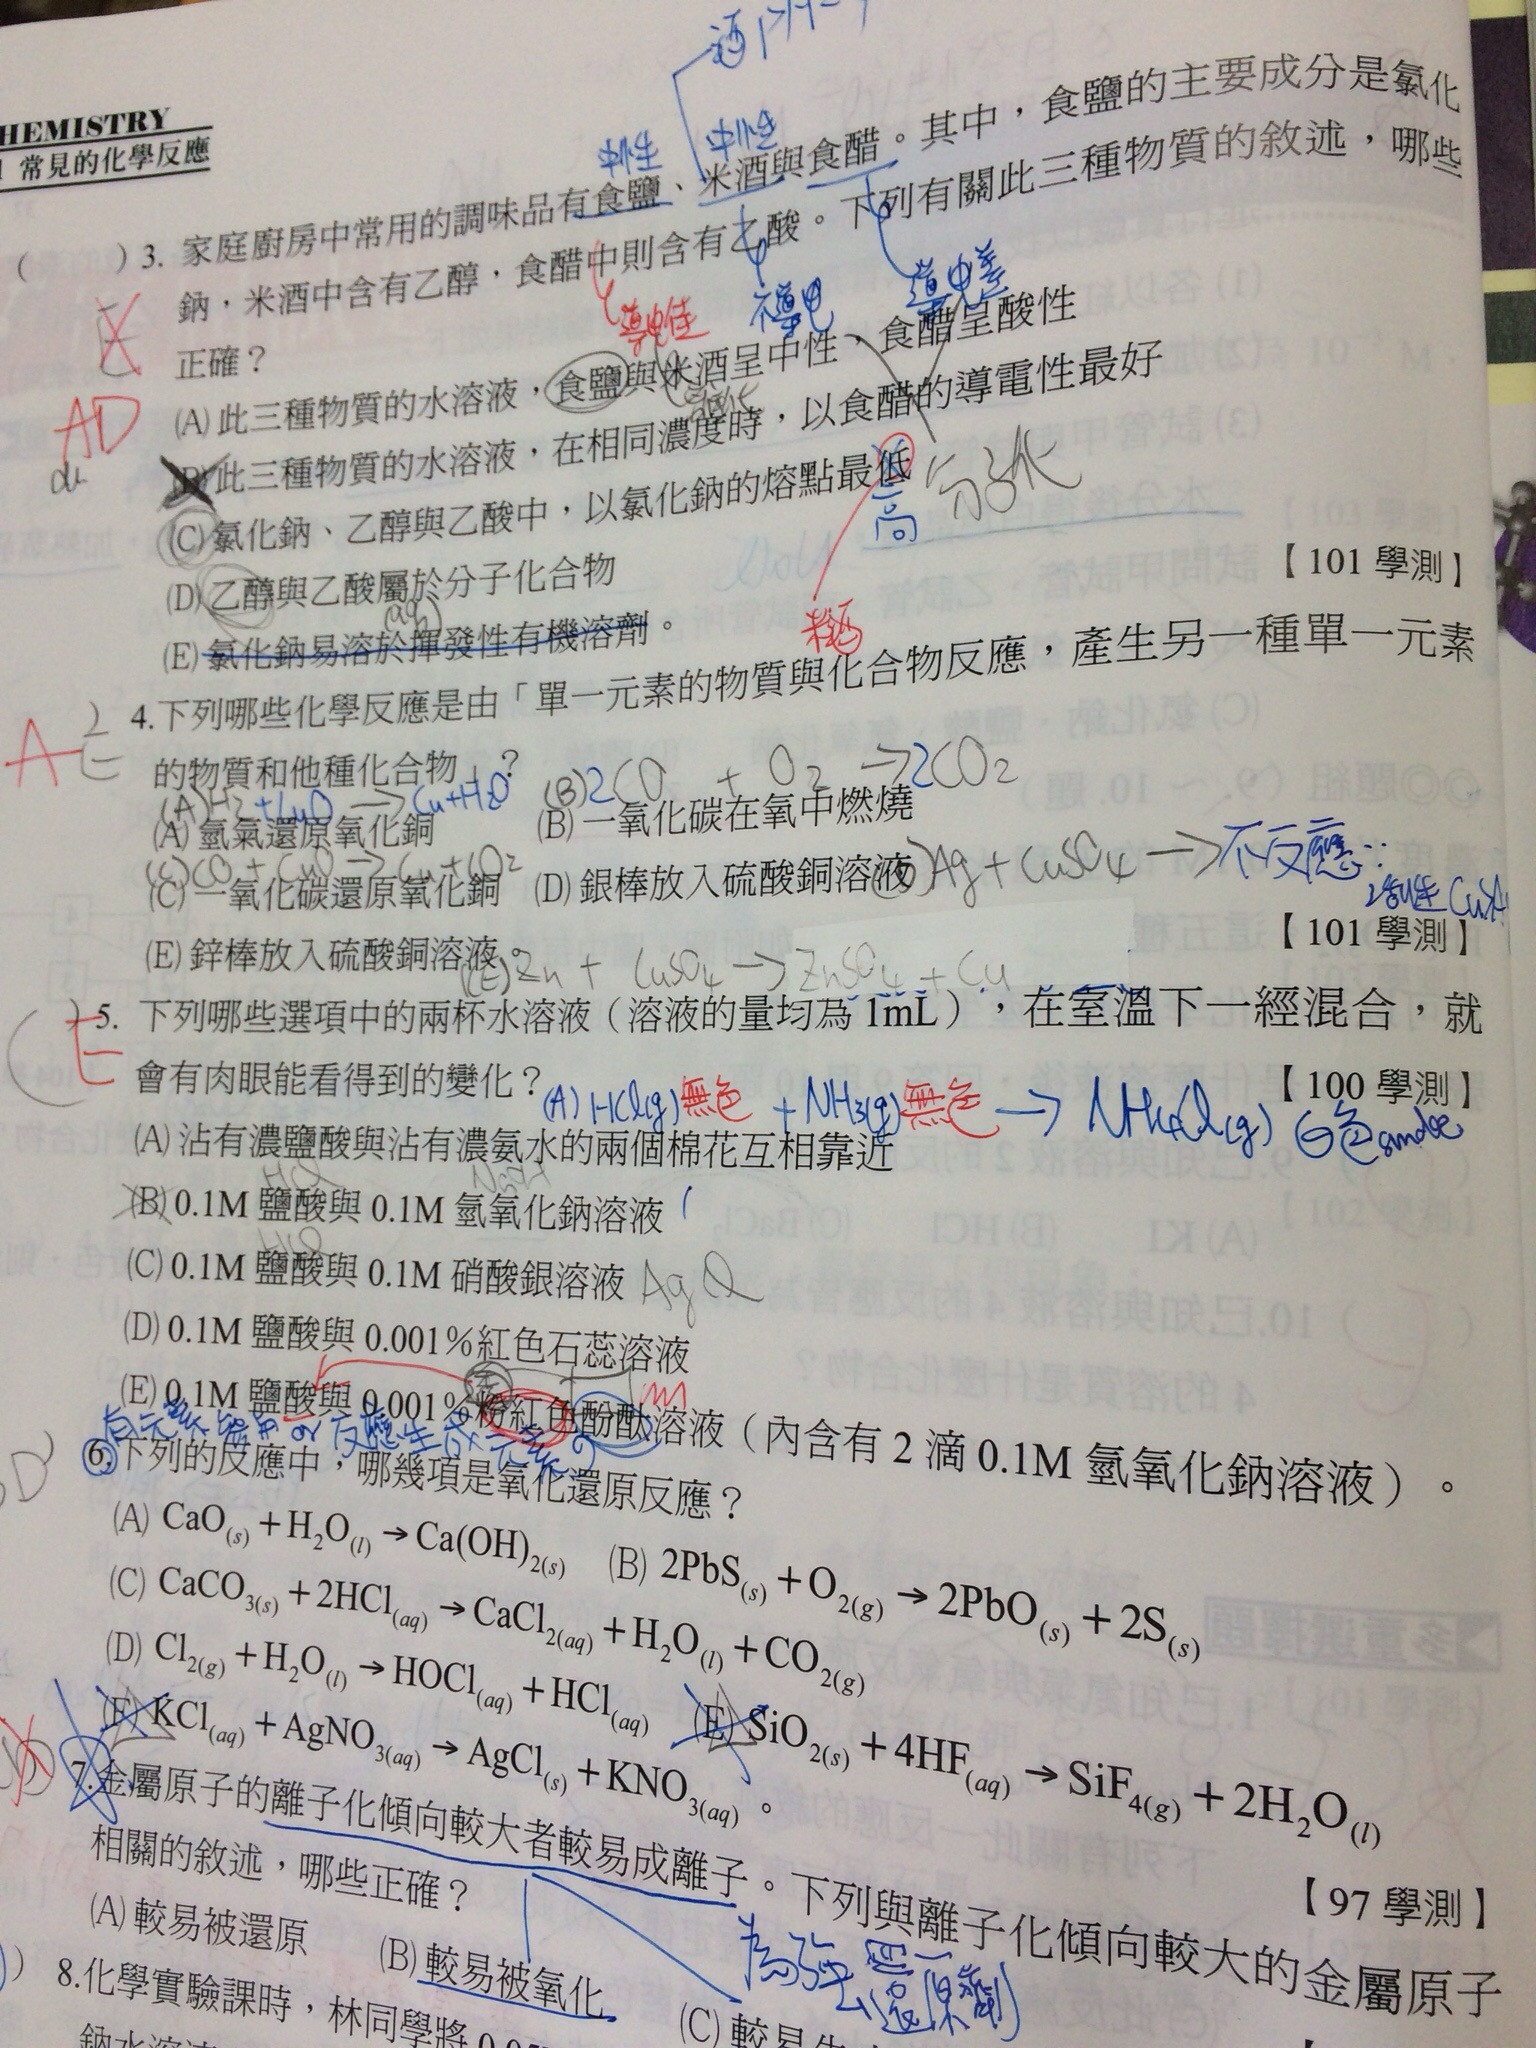 HEMISTRY
常見的化學反應
中性
中性
( )3. 家庭廚房中常用的調味品有食鹽、米酒與食醋。其中，食鹽的主要成分是氯化
鈉，米酒中含有乙醇，食醋中則含有乙酸。下列有關此三種物質的敘述，哪些
正確？
導電佳
不導電
導電差
AD
(A) 此三種物質的水溶液，食鹽與米酒呈中性、食醋呈酸性
(B) 此三種物質的水溶液，在相同濃度時，以食醋的導電性最好
(C) 氯化鈉、乙醇與乙酸中，以氯化鈉的熔點最低
高
分子化
(D) 乙醇與乙酸屬於分子化合物
【101 學測】
(aq)
(E) 氯化鈉易溶於揮發性有機溶劑。
米酒
AE
) 4.下列哪些化學反應是由「單一元素的物質與化合物反應，產生另一種單一元素
的物質和他種化合物」？
(A)H2+CuO→Cu+H2O
(B)2CO + O2 →2CO2
(A) 氫氣還原氧化銅
(B) 一氧化碳在氧中燃燒
(C)CO+CuO→Cu+CO2
(C) 一氧化碳還原氧化銅
(D) 銀棒放入硫酸銅溶液
(D)Ag+CuSO4→不反應∵
活性Cu
(E) 鋅棒放入硫酸銅溶液。
【101 學測】
(E)Zn + CuSO4→ZnSO4+Cu
5. 下列哪些選項中的兩杯水溶液（溶液的量均為 1mL），在室溫下一經混合，就
會有肉眼能看得到的變化？
【100 學測】
(A)HCl(g)無色 +NH3(g)無色→NH4Cl(g) 白色smoke
(A) 沾有濃鹽酸與沾有濃氨水的兩個棉花互相靠近
HCl
NaOH
(B) 0.1M 鹽酸與 0.1M 氫氧化鈉溶液
HCl
(C) 0.1M 鹽酸與 0.1M 硝酸銀溶液
AgCl
(D) 0.1M 鹽酸與 0.001%紅色石蕊溶液
(E) 0.1M 鹽酸與 0.001%粉紅色酚酞溶液（內含有 2 滴 0.1M 氫氧化鈉溶液）。
有元素參與or反應生成元素
6.下列的反應中，哪幾項是氧化還原反應？
(A) CaO(s)+H2O(l)→Ca(OH)2(s)
(B) 2PbS(s)+O2(g)→2PbO(s)+2S(s)
(C) CaCO3(s)+2HCl(aq)→CaCl2(aq)+H2O(l)+CO2(g)
(D) Cl2(g)+H2O(l)→HOCl(aq)+HCl(aq)
(E) SiO2(s)+4HF(aq)→SiF4(g)+2H2O(l)
(F) KCl(aq)+AgNO3(aq)→AgCl(s)+KNO3(aq)。
【97 學測】
7.金屬原子的離子化傾向較大者較易成離子。下列與離子化傾向較大的金屬原子
相關的敘述，哪些正確？
為強還原劑
(A) 較易被還原
(B) 較易被氧化
(C) 較易
) 8.化學實驗課時，林同學將 0.05
鈉水溶液